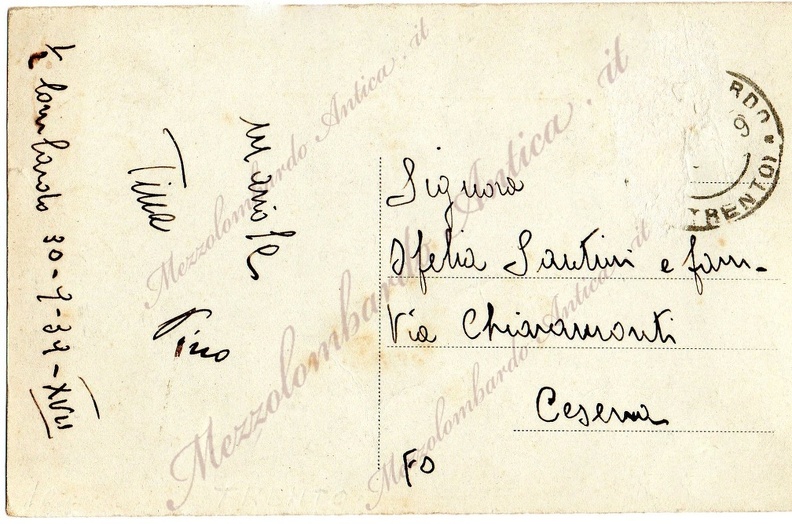 lombardo 30-7-39-XVII
Tina
Pino
Signora
Ofelia Santini e fam-
Via Chiaramonti
Cesena
FO
RDO * (TRENTO)
9
Mezzolombardo Antica.it
Mezzolombardo Antica.it
Mezzolombardo Antica.it
TRENTO